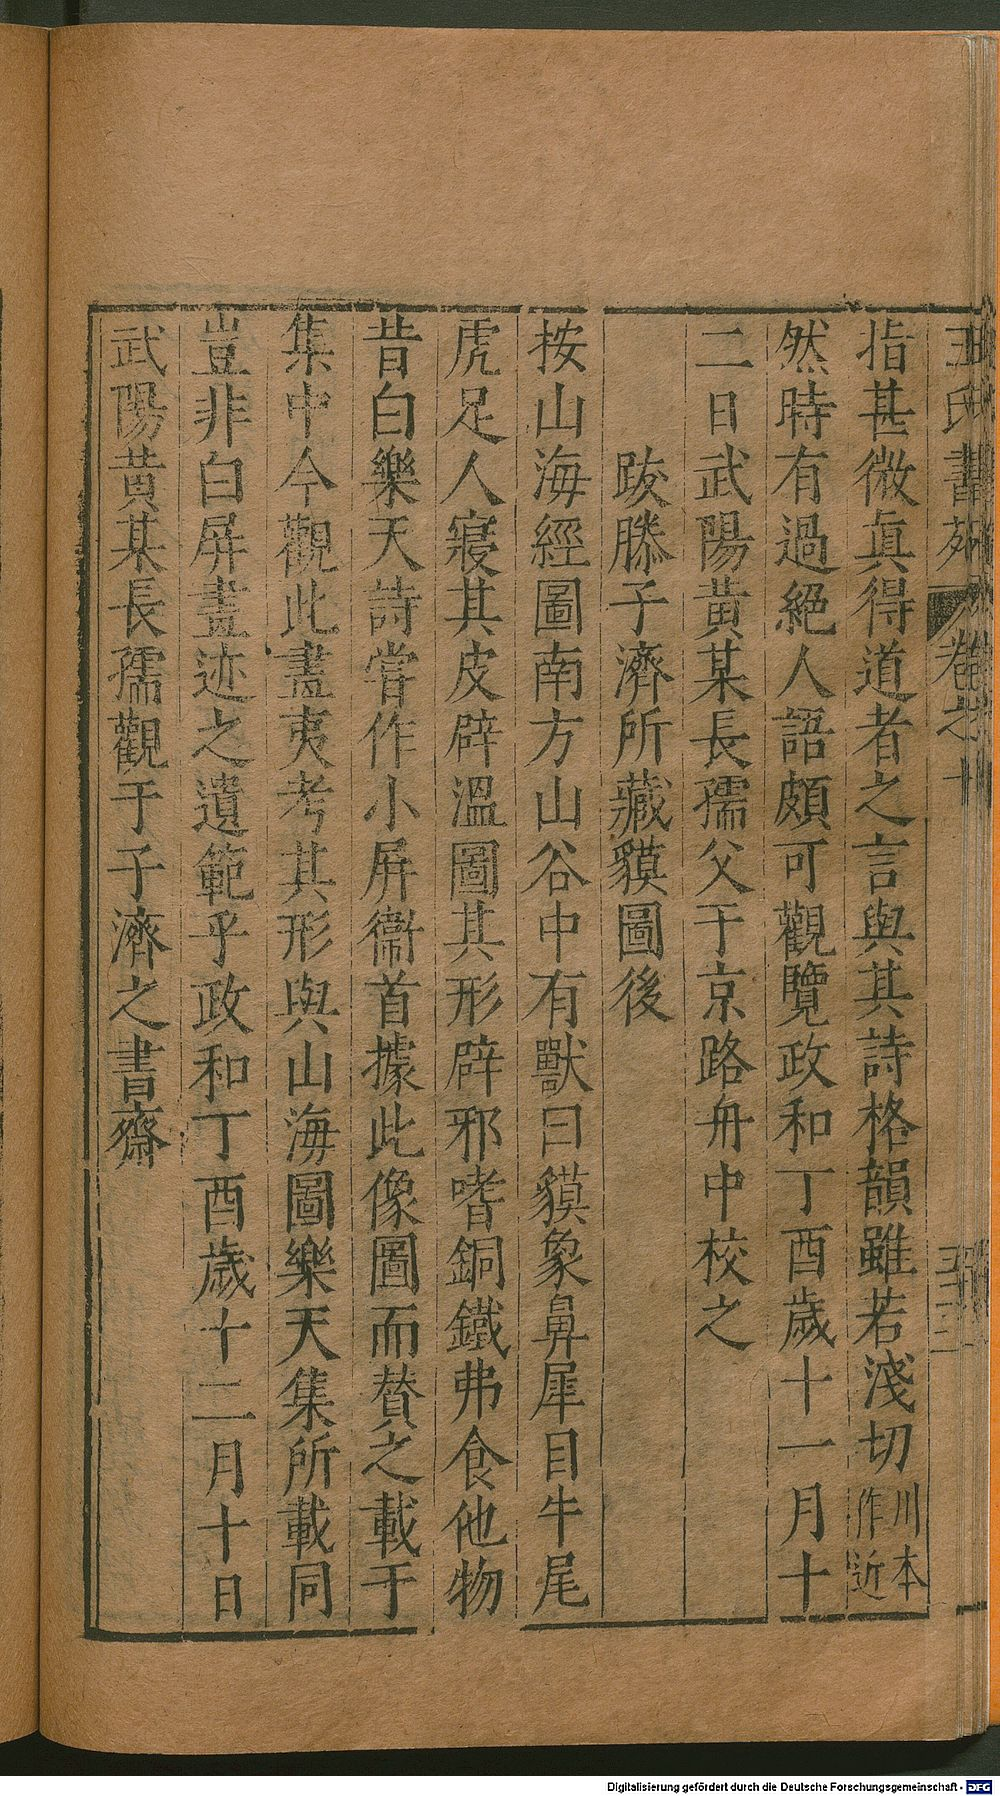 王氏書苑 卷之十
指甚微眞得道者之言與其詩格韻雖若淺切川本作近
然時有過絕人語頗可觀覽政和丁酉歲十一月十
二日武陽黃某長孺父于京路舟中校之
跋滕子濟所藏貘圖後
按山海經圖南方山谷中有獸曰貘象鼻犀目牛尾
虎足人寢其皮辟溫圖其形辟邪嗜銅鐵弗食他物
昔白樂天詩嘗作小屏衞首據此像圖而賛之載于
集中今觀此畫夷考其形與山海圖樂天集所載同
豈非白屏畫迹之遺範乎政和丁酉歲十二月十日
武陽黃某長孺觀于子濟之書齋
Digitalisierung gefördert durch die Deutsche Forschungsgemeinschaft - DFG